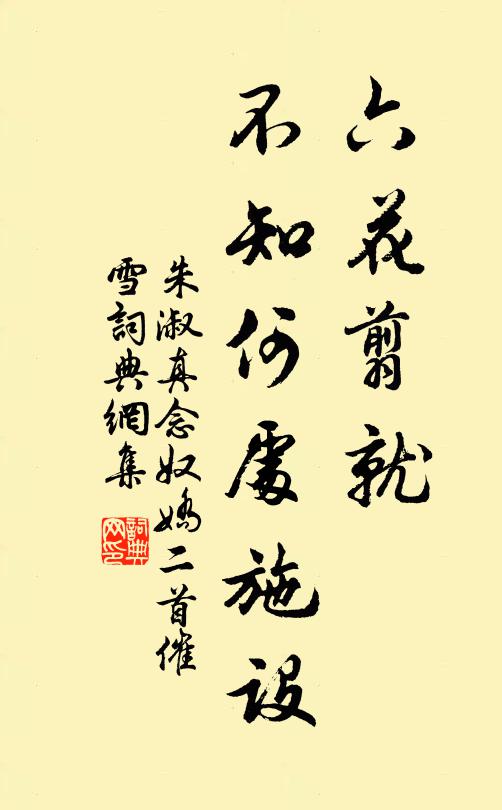 六花翦就
不知何處施設
朱淑真念奴嬌二首催
雪詞典網集
詞典
网印